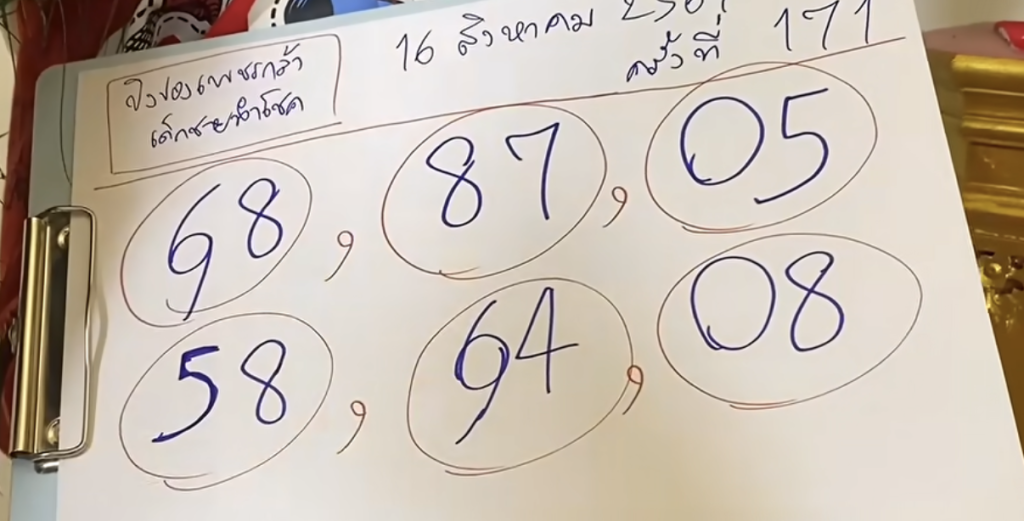 ปิงปองเพชรกล้า
เด็กชายนำโชค
16 สิงหาคม
ครั้งที่ 171
68 , 87 , 05
58 , 64 , 08